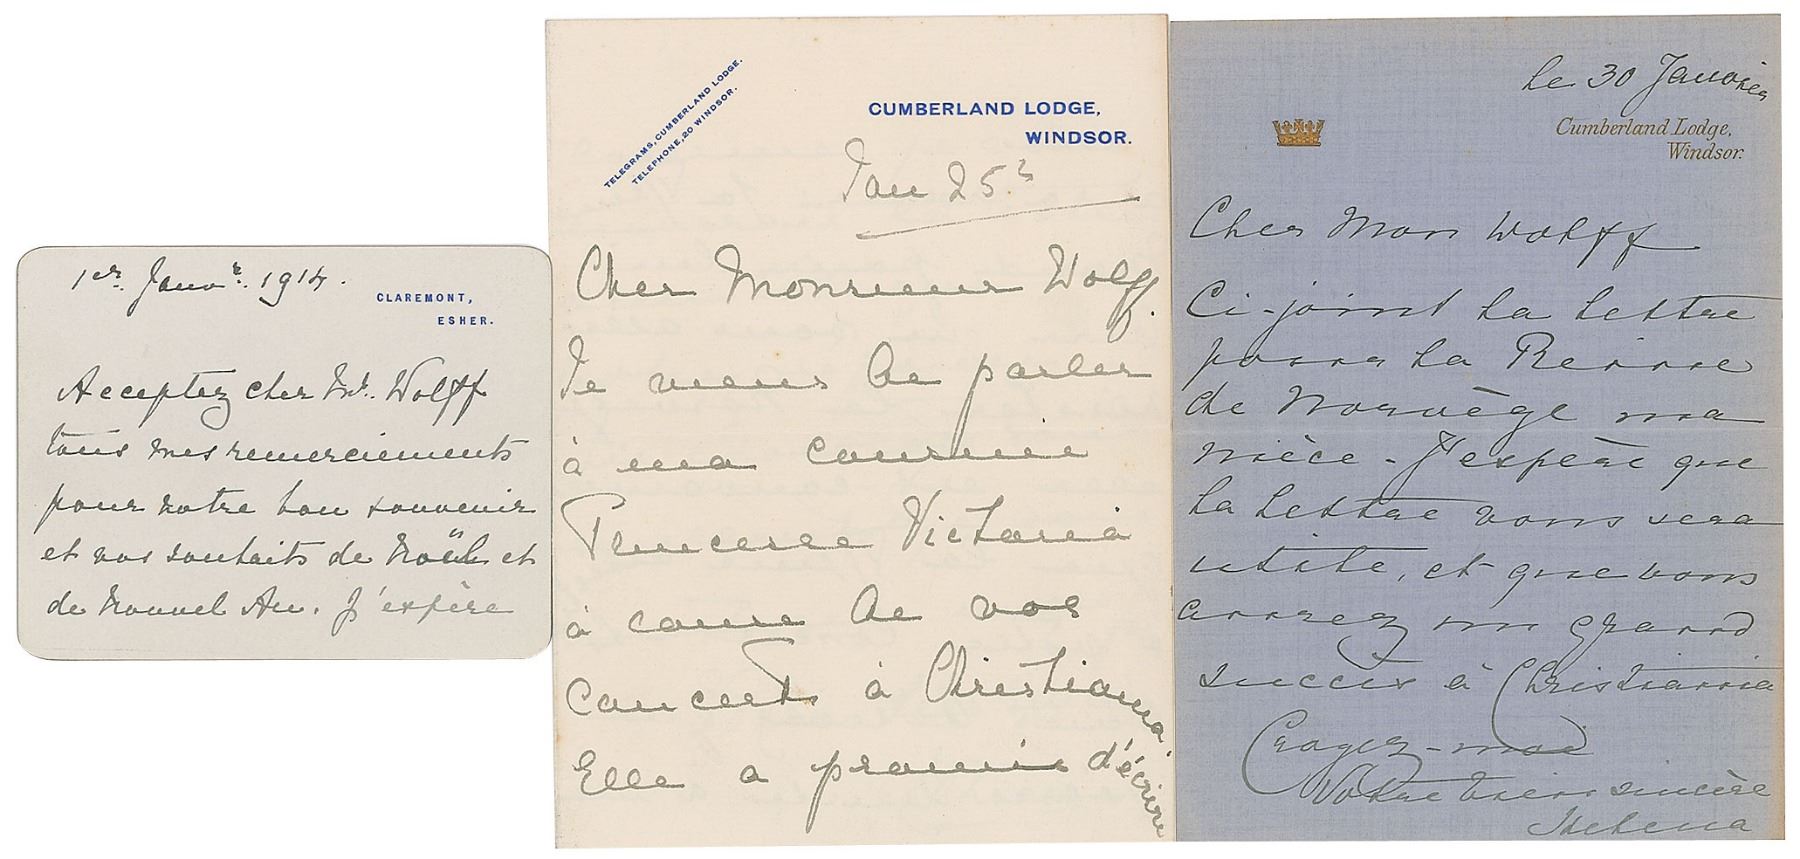 1er. Janvr. 1914.
CLAREMONT,
ESHER.
Acceptez cher Mr. Wolff
tous mes remerciements
pour votre bon souvenir
et vos souhaits de Noël et
de Nouvel An. J'espère
TELEGRAMS, CUMBERLAND LODGE.
TELEPHONE, 20 WINDSOR.
CUMBERLAND LODGE,
WINDSOR.
Jan 25th
Cher Monsieur Wolff.
Je viens de parler
à ma cousine
Princesse Victoria
à cause de vos
Concerts à Christiania.
Elle a promis d'écrire
le 30 Janvier
Cumberland Lodge,
Windsor.
Cher Mon Wolff
Ci-joint la lettre
pour la Reine
de Norvège ma
nièce - J'espère que
la lettre vous sera
utile, et que vous
aurez un grand
succès à Christiania
Croyez-moi
Votre bien sincère
Helena